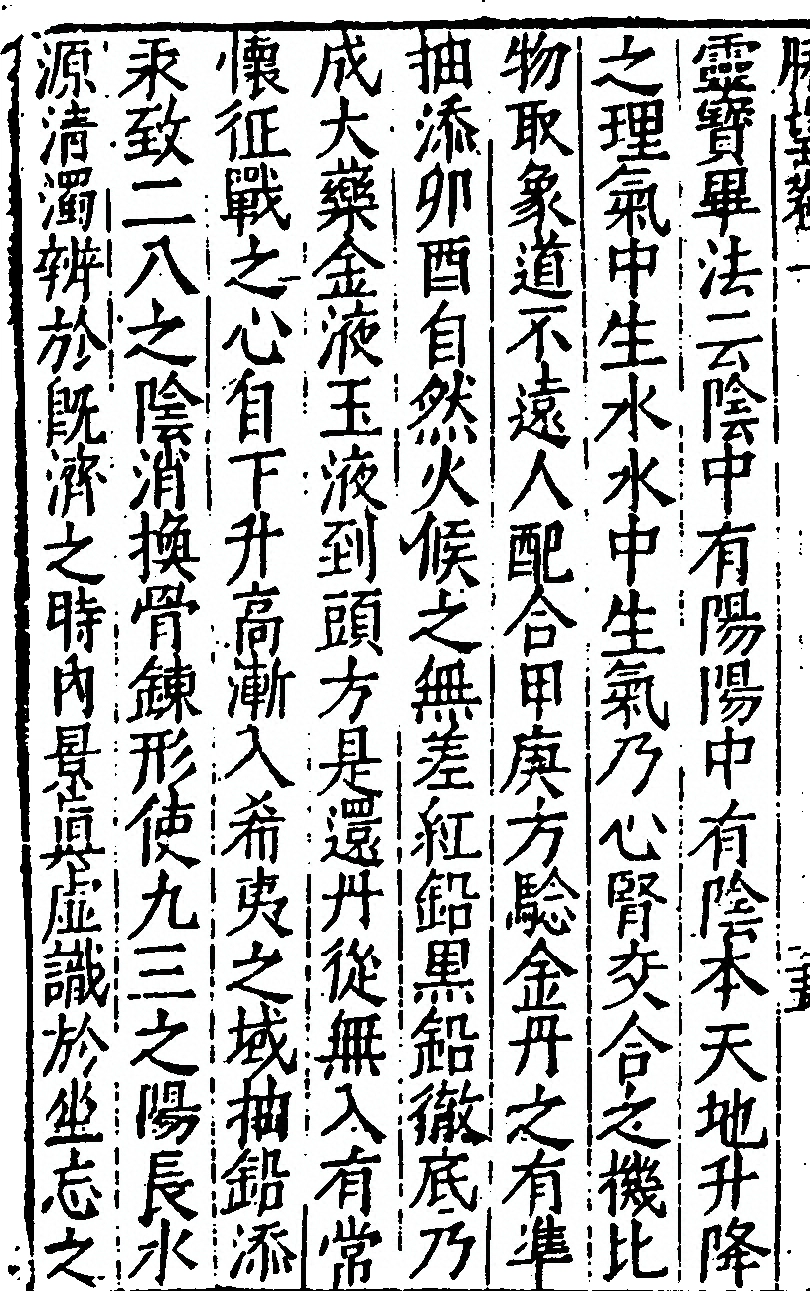 靈寶畢法云陰中有陽陽中有陰本天地升降
之理氣中生水水中生氣乃心腎交合之機比
物取象道不遠人配合甲庚方驗金丹之有準
抽添卯酉自然火候之無差紅鉛黑鉛徹底乃
成大藥金液玉液到頭方是還丹從無入有常
懷征戰之心自下升高漸入希夷之域抽鉛添
汞致二八之陰消換骨鍊形使九三之陽長水
源清濁辨於旣濟之時內景眞虛識於坐忘之